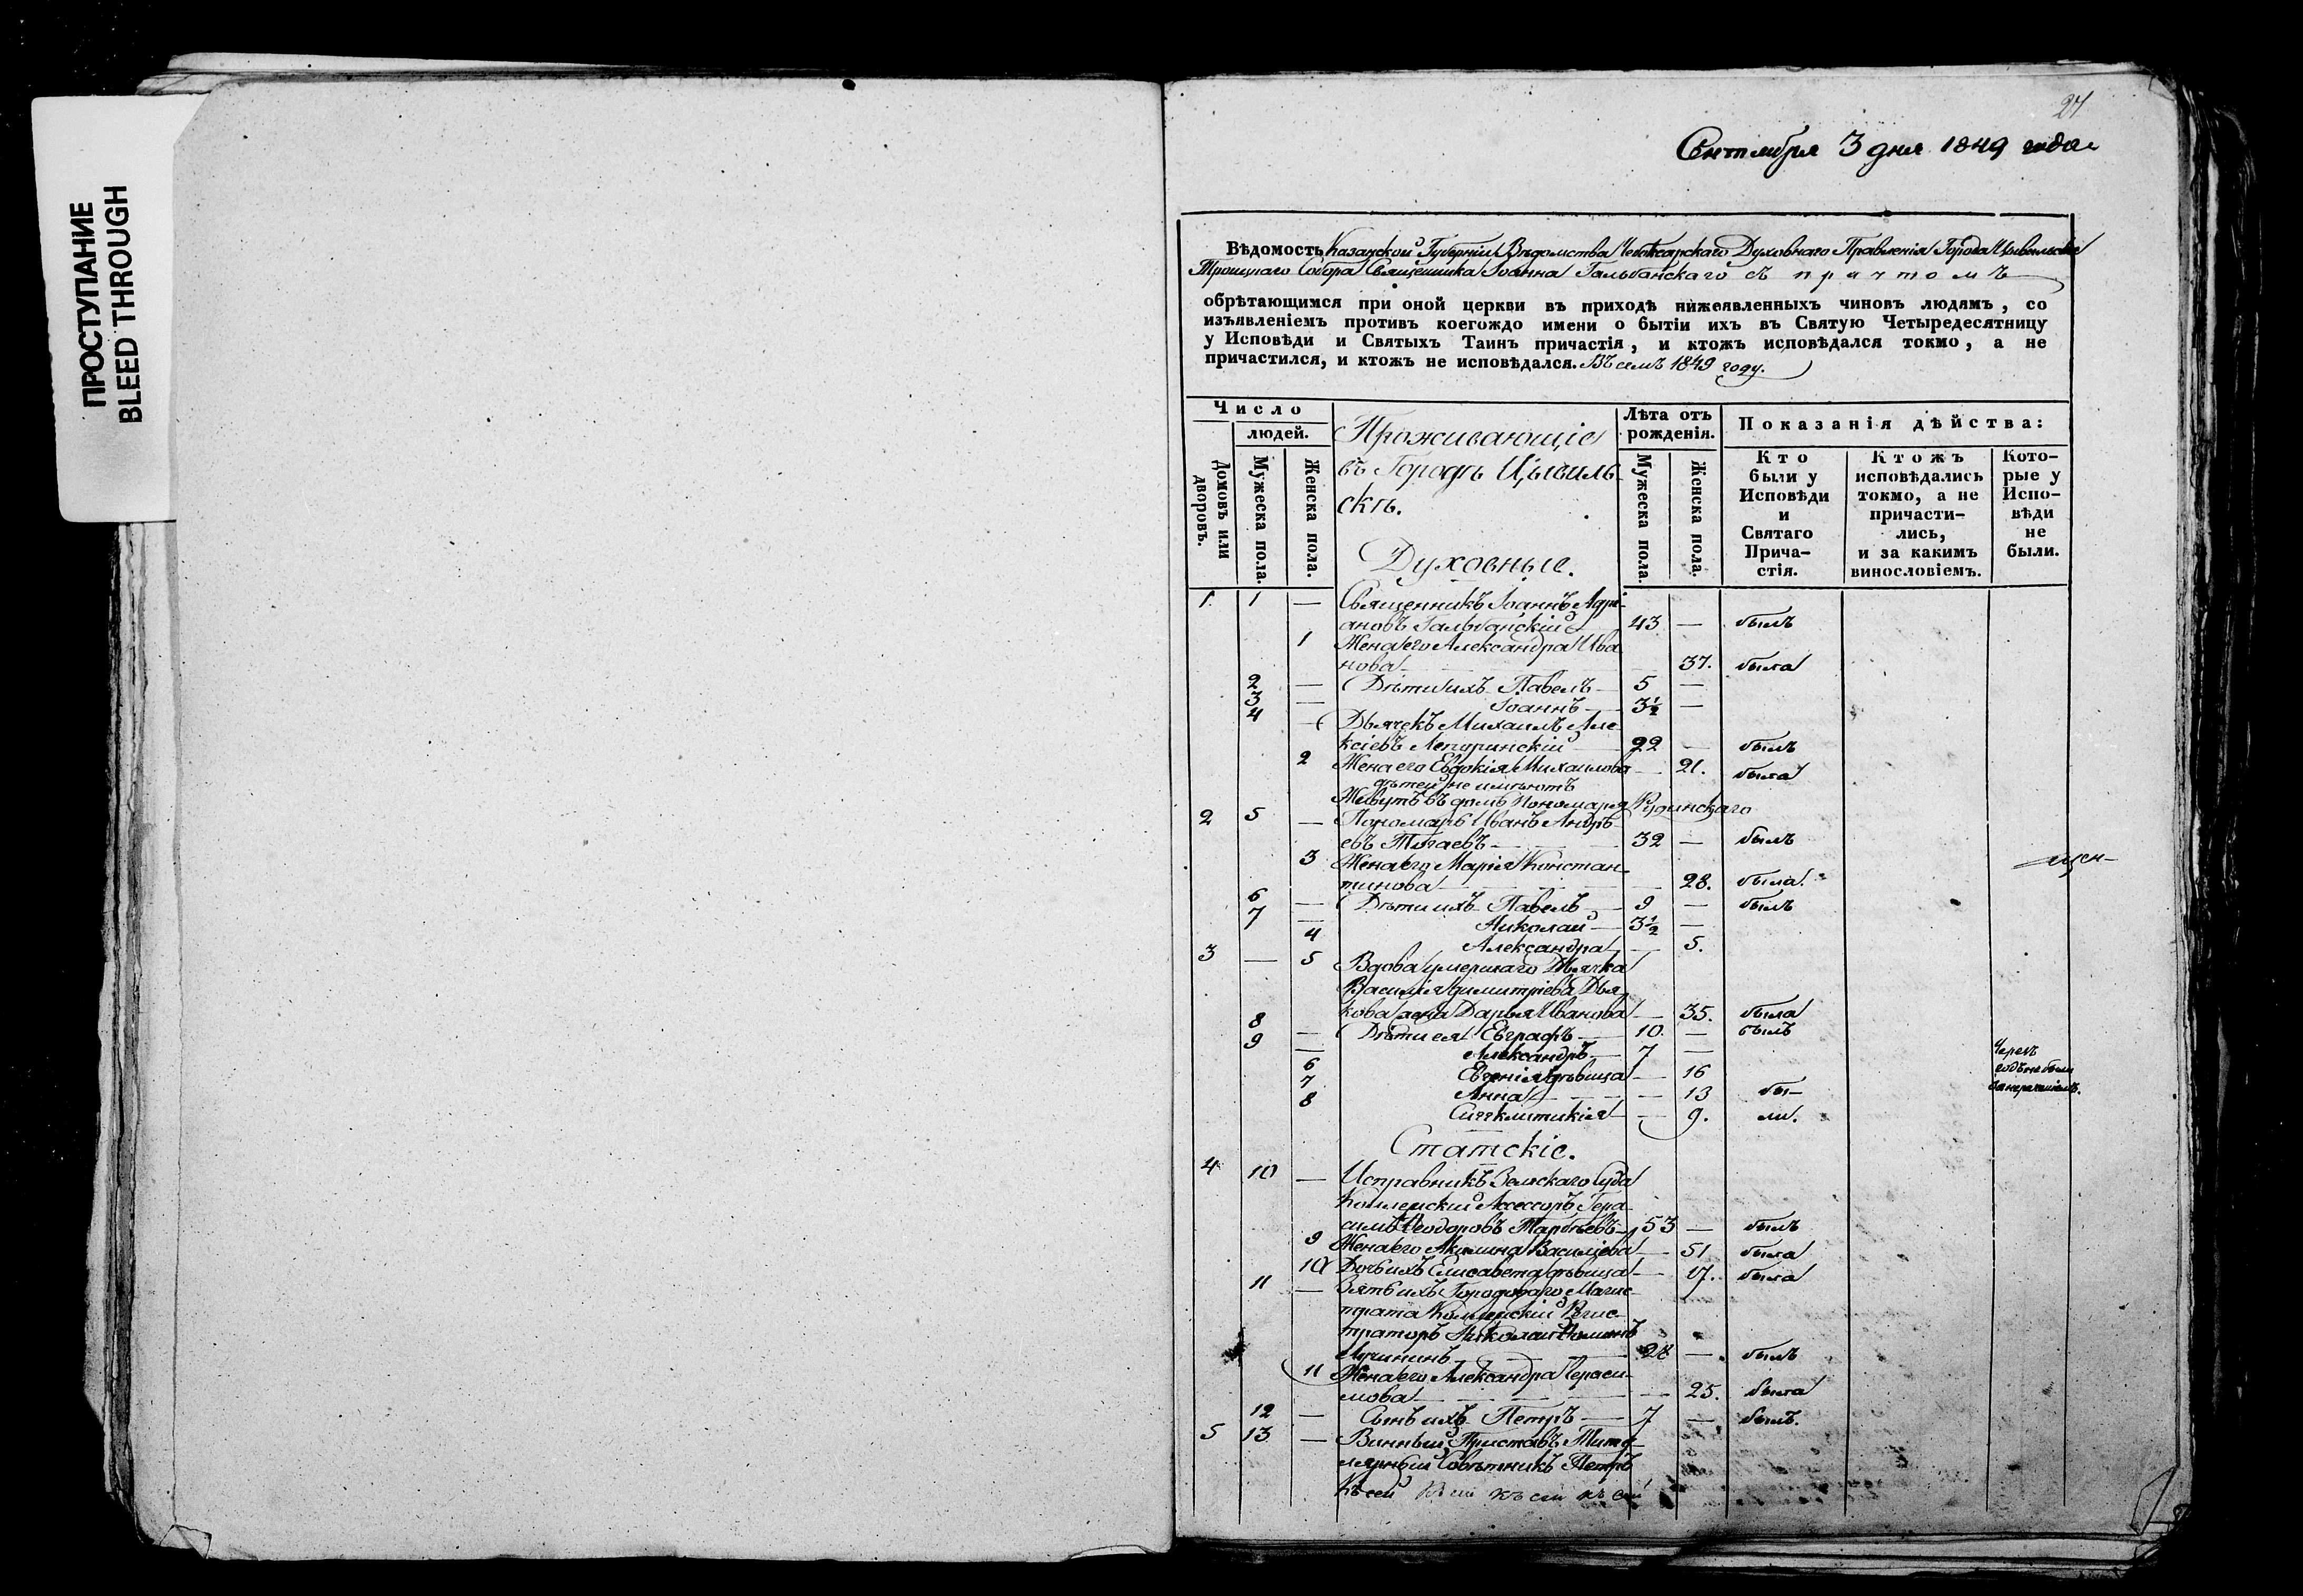 ПРОСТУПАНИЕ
BLEED THROUGH
Сентября 3 дня 1849 года
Вѣдомость Казанской Губерніи Вѣдомства Чебоксарскаго Духовнаго Правленія Города Цывильска
Троицкаго Собора Священника Іоанна Гальбанскаго съ причтомъ
обрѣтающимся при оной церкви въ приходѣ нижеявленныхъ чиновъ людямъ, со
изъявленіемъ противъ коегождо имени о бытіи ихъ въ Святую Четыредесятницу
у Исповѣди и Святыхъ Таинъ причастія, и ктожъ исповѣдался токмо, а не
причастился, и ктожъ не исповѣдался. Въ семъ 1849 году.
Число
людей.
Домовъ или дворовъ.
Мужеска пола.
Женска пола.
Проживающіе
въ Городѣ Цывиль-
скѣ.
Духовные.
Лѣта отъ
рожденія.
Мужеска пола.
Женска пола.
Показанія дѣйства:
Кто
были у
Исповѣди
и
Святаго
Прича-
стія.
Ктожъ
исповѣдались
токмо, а не
причасти-
лись,
и за какимъ
винословіемъ.
Кото-
рые у
Испо-
вѣди
не
были.
1. 1 — Священникъ Іоаннъ Адрі-
ановъ Гальбанскій 43 — былъ
1 Жена его Александра Ива
нова — 37. была
2 — Дѣти ихъ Павелъ 5 —
3 — Іоаннъ 3½ —
4 — Дьячекъ Михаилъ Але
ксіевъ 22 — былъ
2 Жена его Евдокія Михаилова — 21. была
дѣтей не имѣютъ
Живутъ въ домѣ Пономаря
2 5 — Пономарь Иванъ Андрѣ
евъ 32 — былъ
3 Жена его Марія Констан
тинова — 28. была.
6 — Дѣти ихъ Павелъ 9 — былъ
7 — Николай 3½ —
4 Александра — 5.
3 — 5 Вдова умершаго Дьячка
Василія Димитріева Дья
кова жена Дарья Иванова — 35. была
8 — Дѣти ея Евграфъ 10. — былъ
9 — Александръ 7 —
6 Евгенія дѣвица — 16
7 Анна — 13 бы-
8 Сигклитикія — 9. ли.
Черезъ
годъ не были
за нераченіемъ.
Статскіе.
4 10 — Исправникъ Земскаго Суда
Коллежскій Асессоръ Гера
симъ Ѳеодоровъ 53 — былъ
9 Жена его Акилина Василіева — 51 была
10 Дочь ихъ Елисавета дѣвица — 17. была
11 — Зять ихъ Городоваго Магис-
трата Коллежскій Регис-
траторъ Николай
28 — былъ
11 Жена его Александра Гераси-
мова — 25. была
12 — Сынъ ихъ Петръ 7 — былъ.
5 13 — Винный Приставъ Титу-
лярный Совѣтникъ Петръ
Къ сей къ сей къ сей къ сей